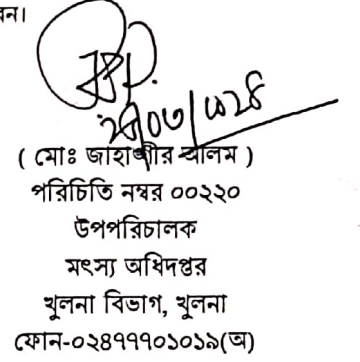 বন।
২৪/০৩/২০২৪
( মোঃ জাহাঙ্গীর আলম )
পরিচিতি নম্বর ০০২২০
উপপরিচালক
মৎস্য অধিদপ্তর
খুলনা বিভাগ, খুলনা
ফোন-০২৪৭৭৭০১০১৯(অ)